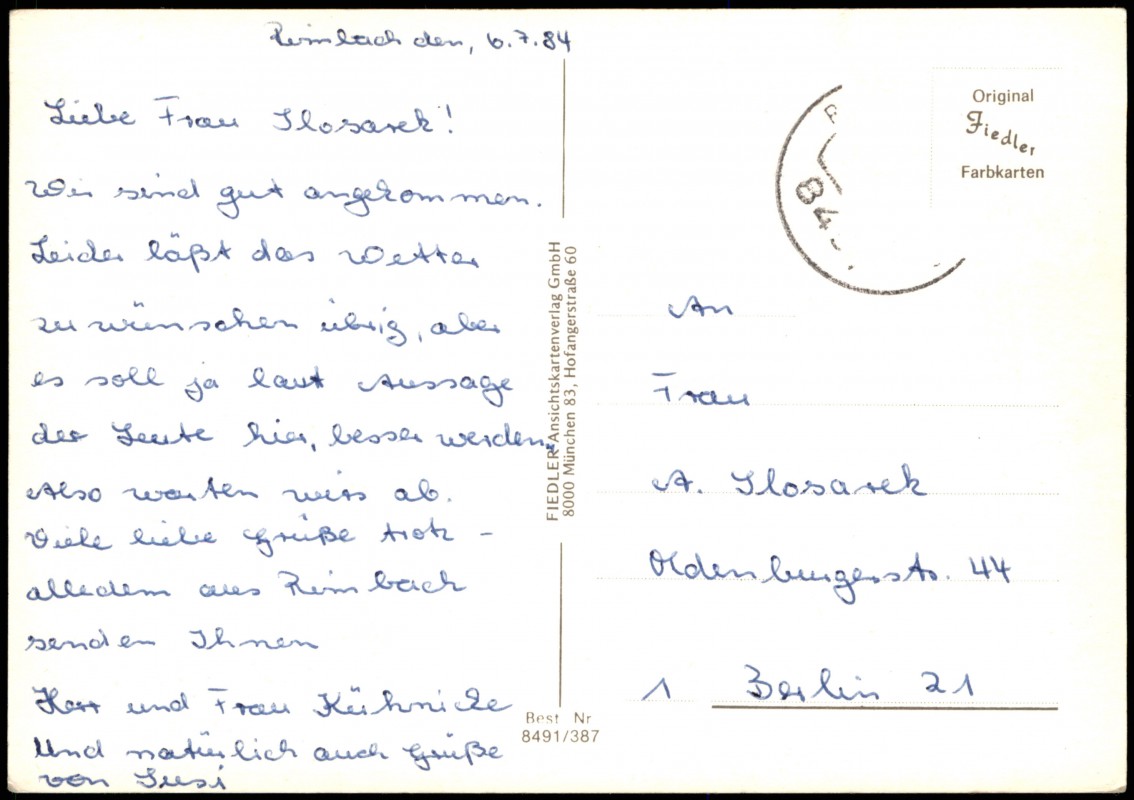 Rimbach den, 6.7.84
Liebe Frau Slosarek!
Wir sind gut angekommen.
Leider läßt das Wetter
zu wünschen übrig, aber
es soll ja laut Aussage
der Leute hier, besser werden.
Also warten wirs ab.
Viele liebe Grüße trotz -
alledem aus Rimbach
senden Ihnen
Herr und Frau Kühnicke
Und natürlich auch Grüße
von Susi
FIEDLER Ansichtskartenverlag GmbH
8000 München 83, Hofangerstraße 60
Best Nr
8491/387
Original
Fiedler
Farbkarten
84
An
Frau
A. Slosarek
Oldenburgerstr. 44
1 Berlin 21